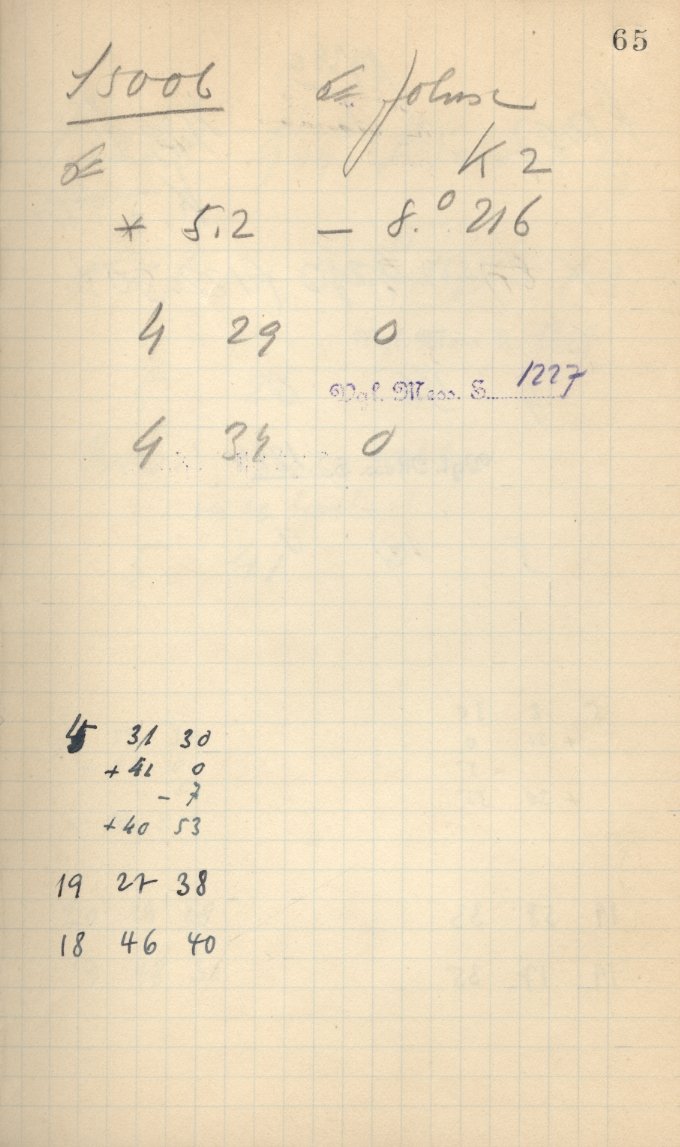 65
15006 Johns
K 2
* 5.2 — 8.° 216
4 29 0
Vgl. Mess. S. 1227
4 34 0
5 31 30
+41 0
- 7
+40 53
19 27 38
18 46 40